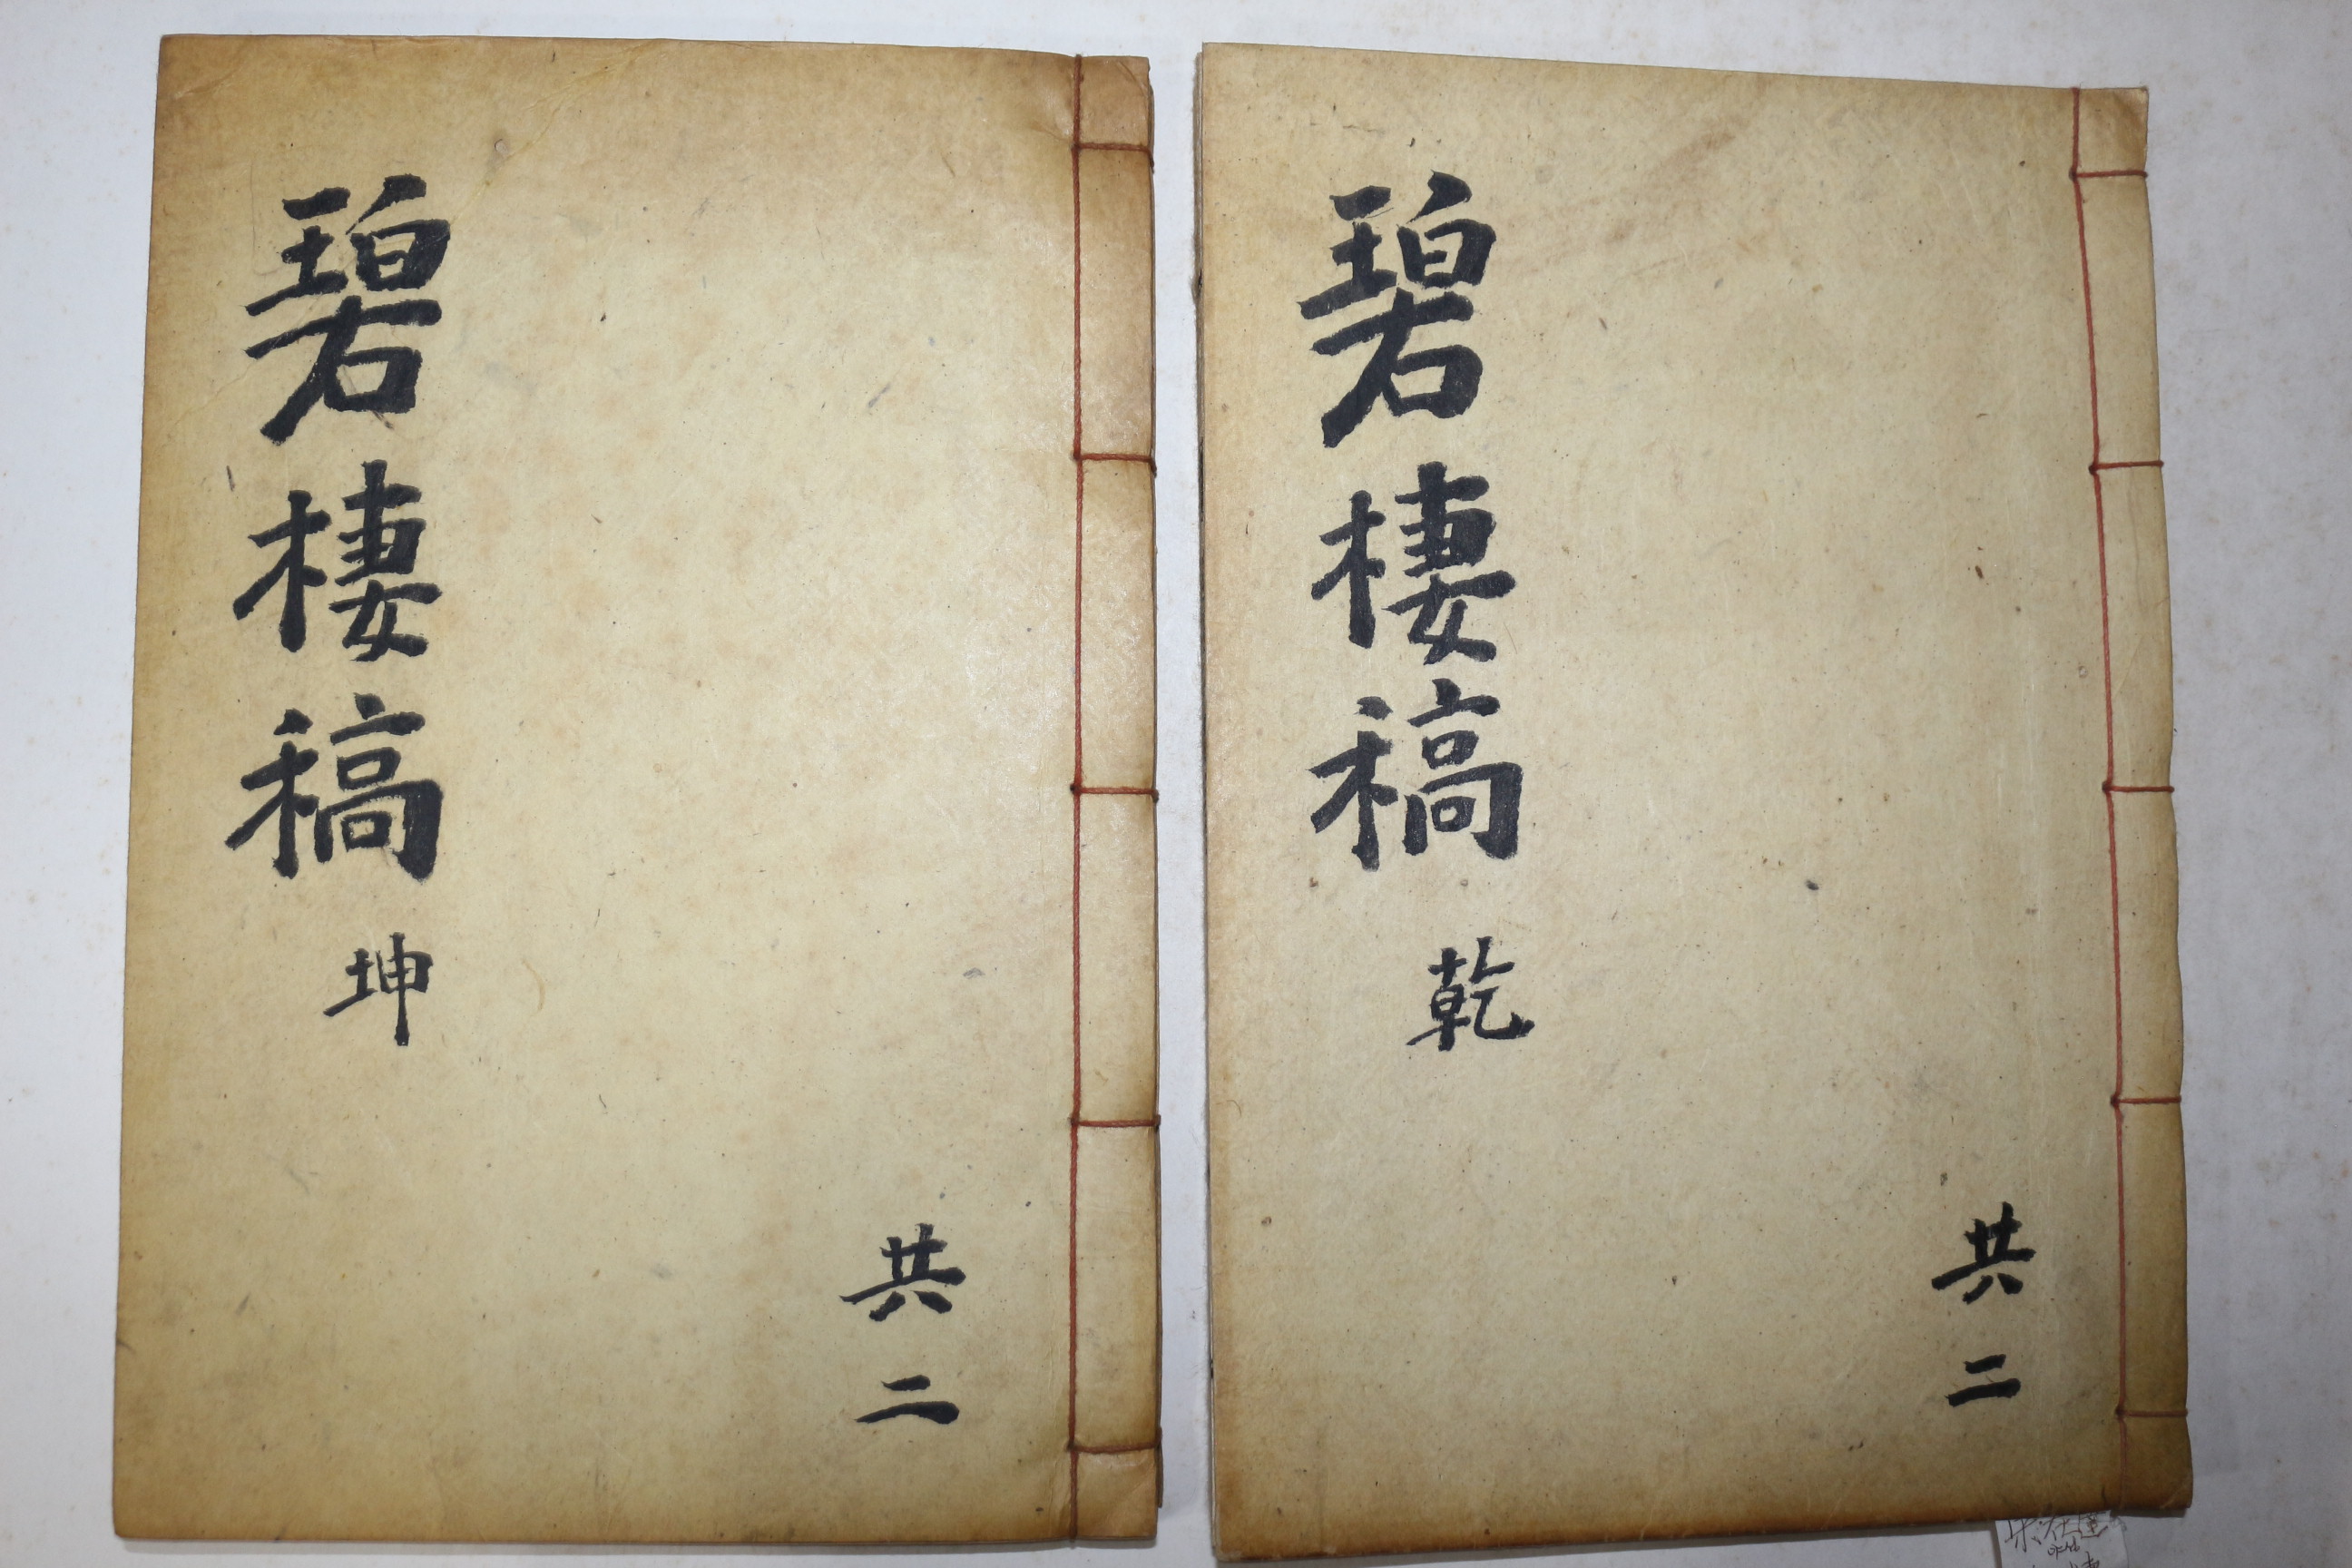 碧棲稿 坤
共二
碧棲稿 乾
共二